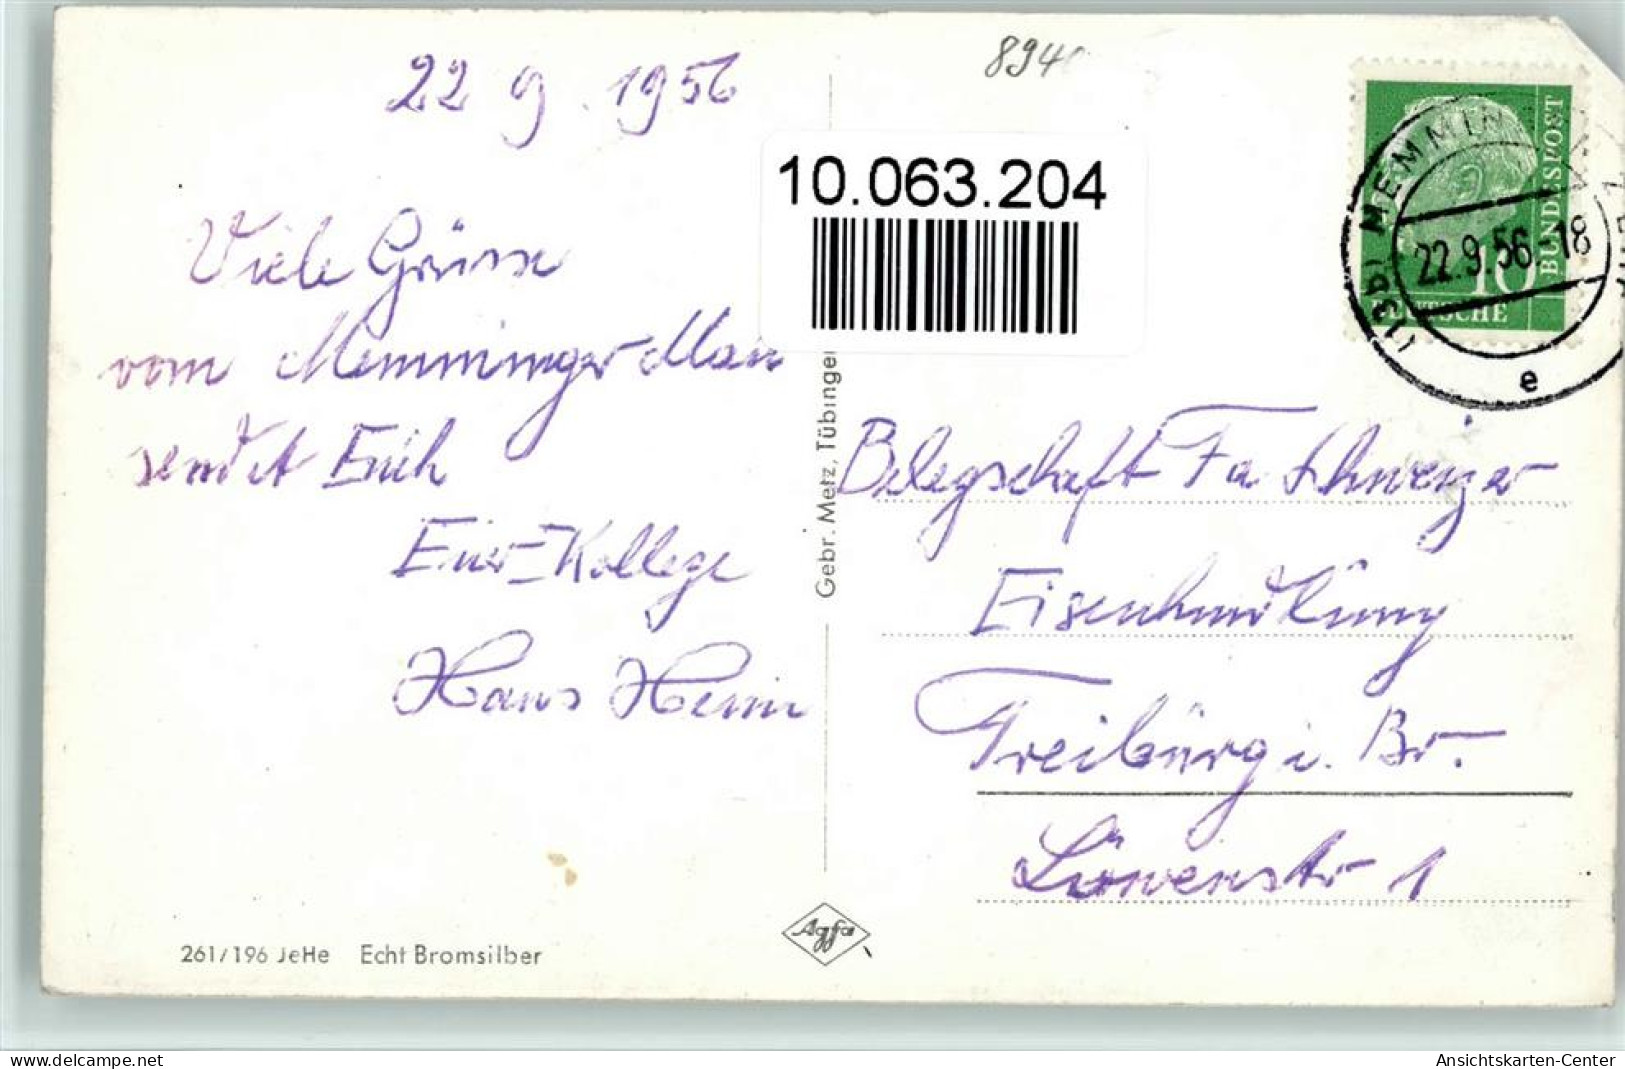 22 9. 1956
894
10.063.204
Viele Grüsse
vom Memminger Mau
sendet Euch
Euer-Kollege
Hans Heim
BUNDESPOST
10
DEUTSCHE
(13b) MEMMIN
22.9.56.-18
e
Gebr. Metz, Tübingen
Belegschaft Fa Schweizer
Eisenhandlung
Freiburg i. Br.
Löwenstr 1
Agfa
261/196 JeHe Echt Bromsilber
oldthing.de
Ansichtskarten-Center